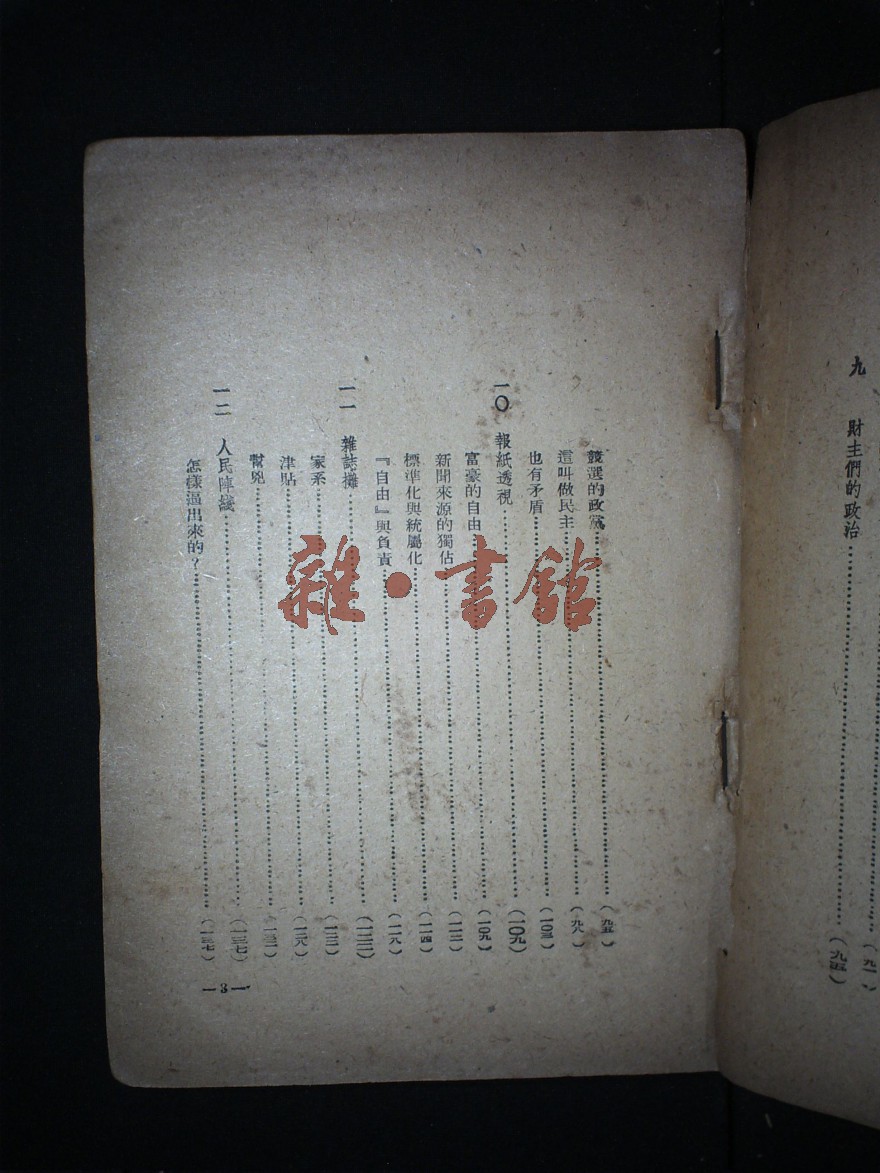 ……(九一)
九 財主們的政治……(九五)
競選的政黨……(九五)
這叫做民主……(九八)
也有矛盾……(一〇三)
一〇 報紙透視……(一〇九)
富豪的自由……(一〇九)
新聞來源的獨佔……(一一二)
標準化與統屬化……(一一四)
『自由』與負責……(一一八)
一一 雜誌攤……(一二二)
家系……(一二二)
津貼……(一二八)
幫兇……(一三一)
一二 人民陣綫……(一三七)
怎樣逼出來的？……(一三七)
—3—
雜·書館